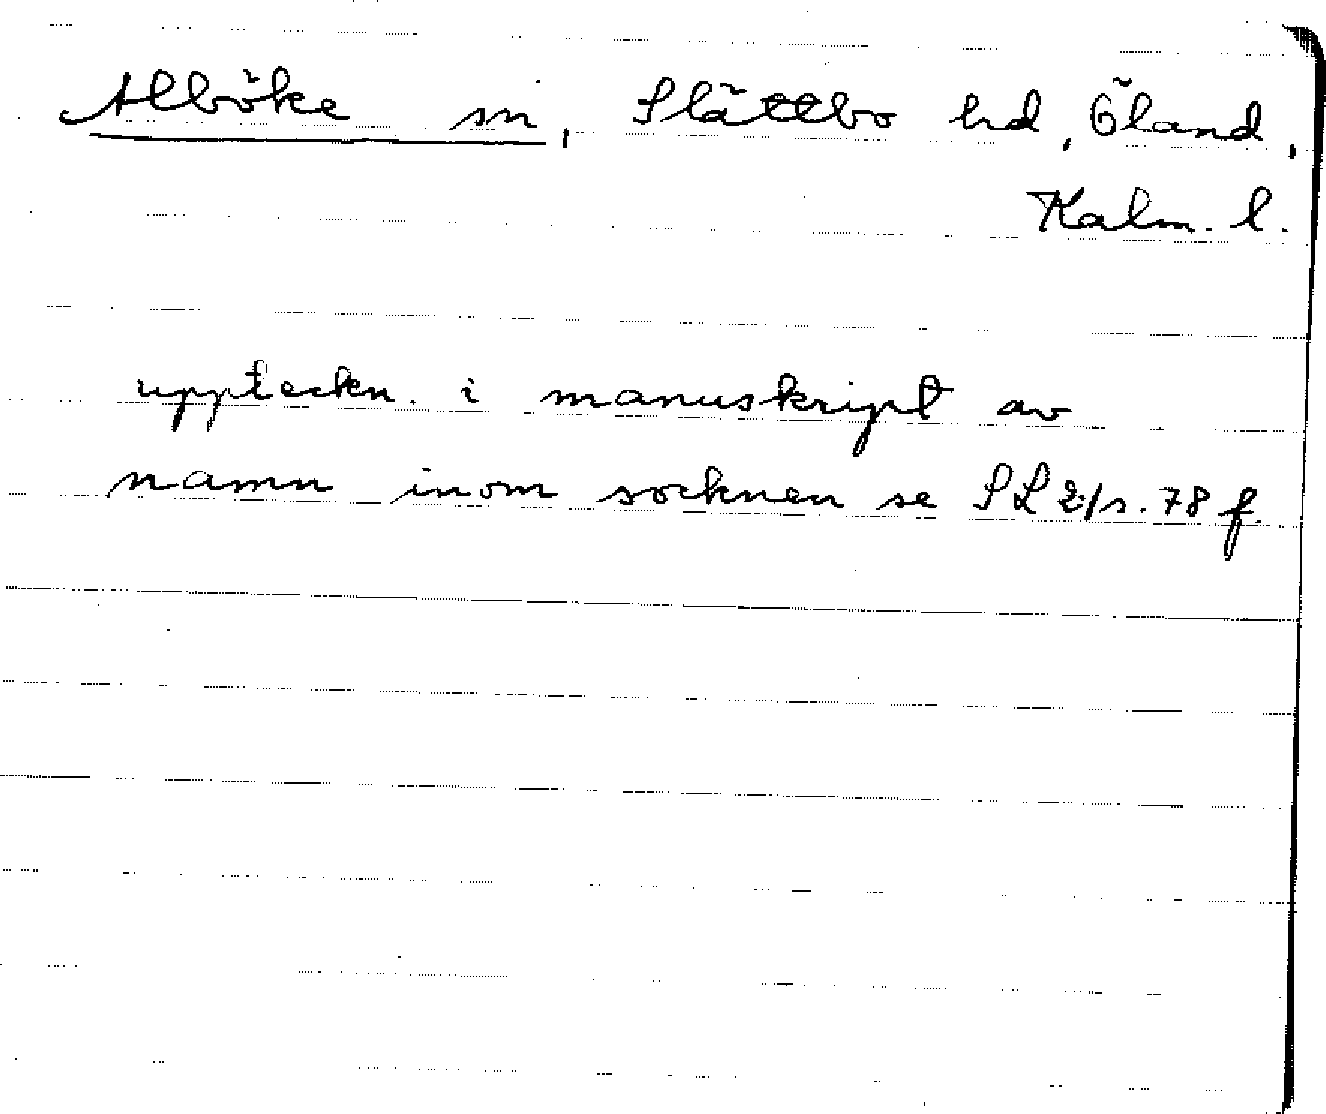 Alböke sn, Slättbo hd, Öland,
Kalm. l.
uppteckn. i manuskript av
namn inom socknen se SL 2/s. 78 f.